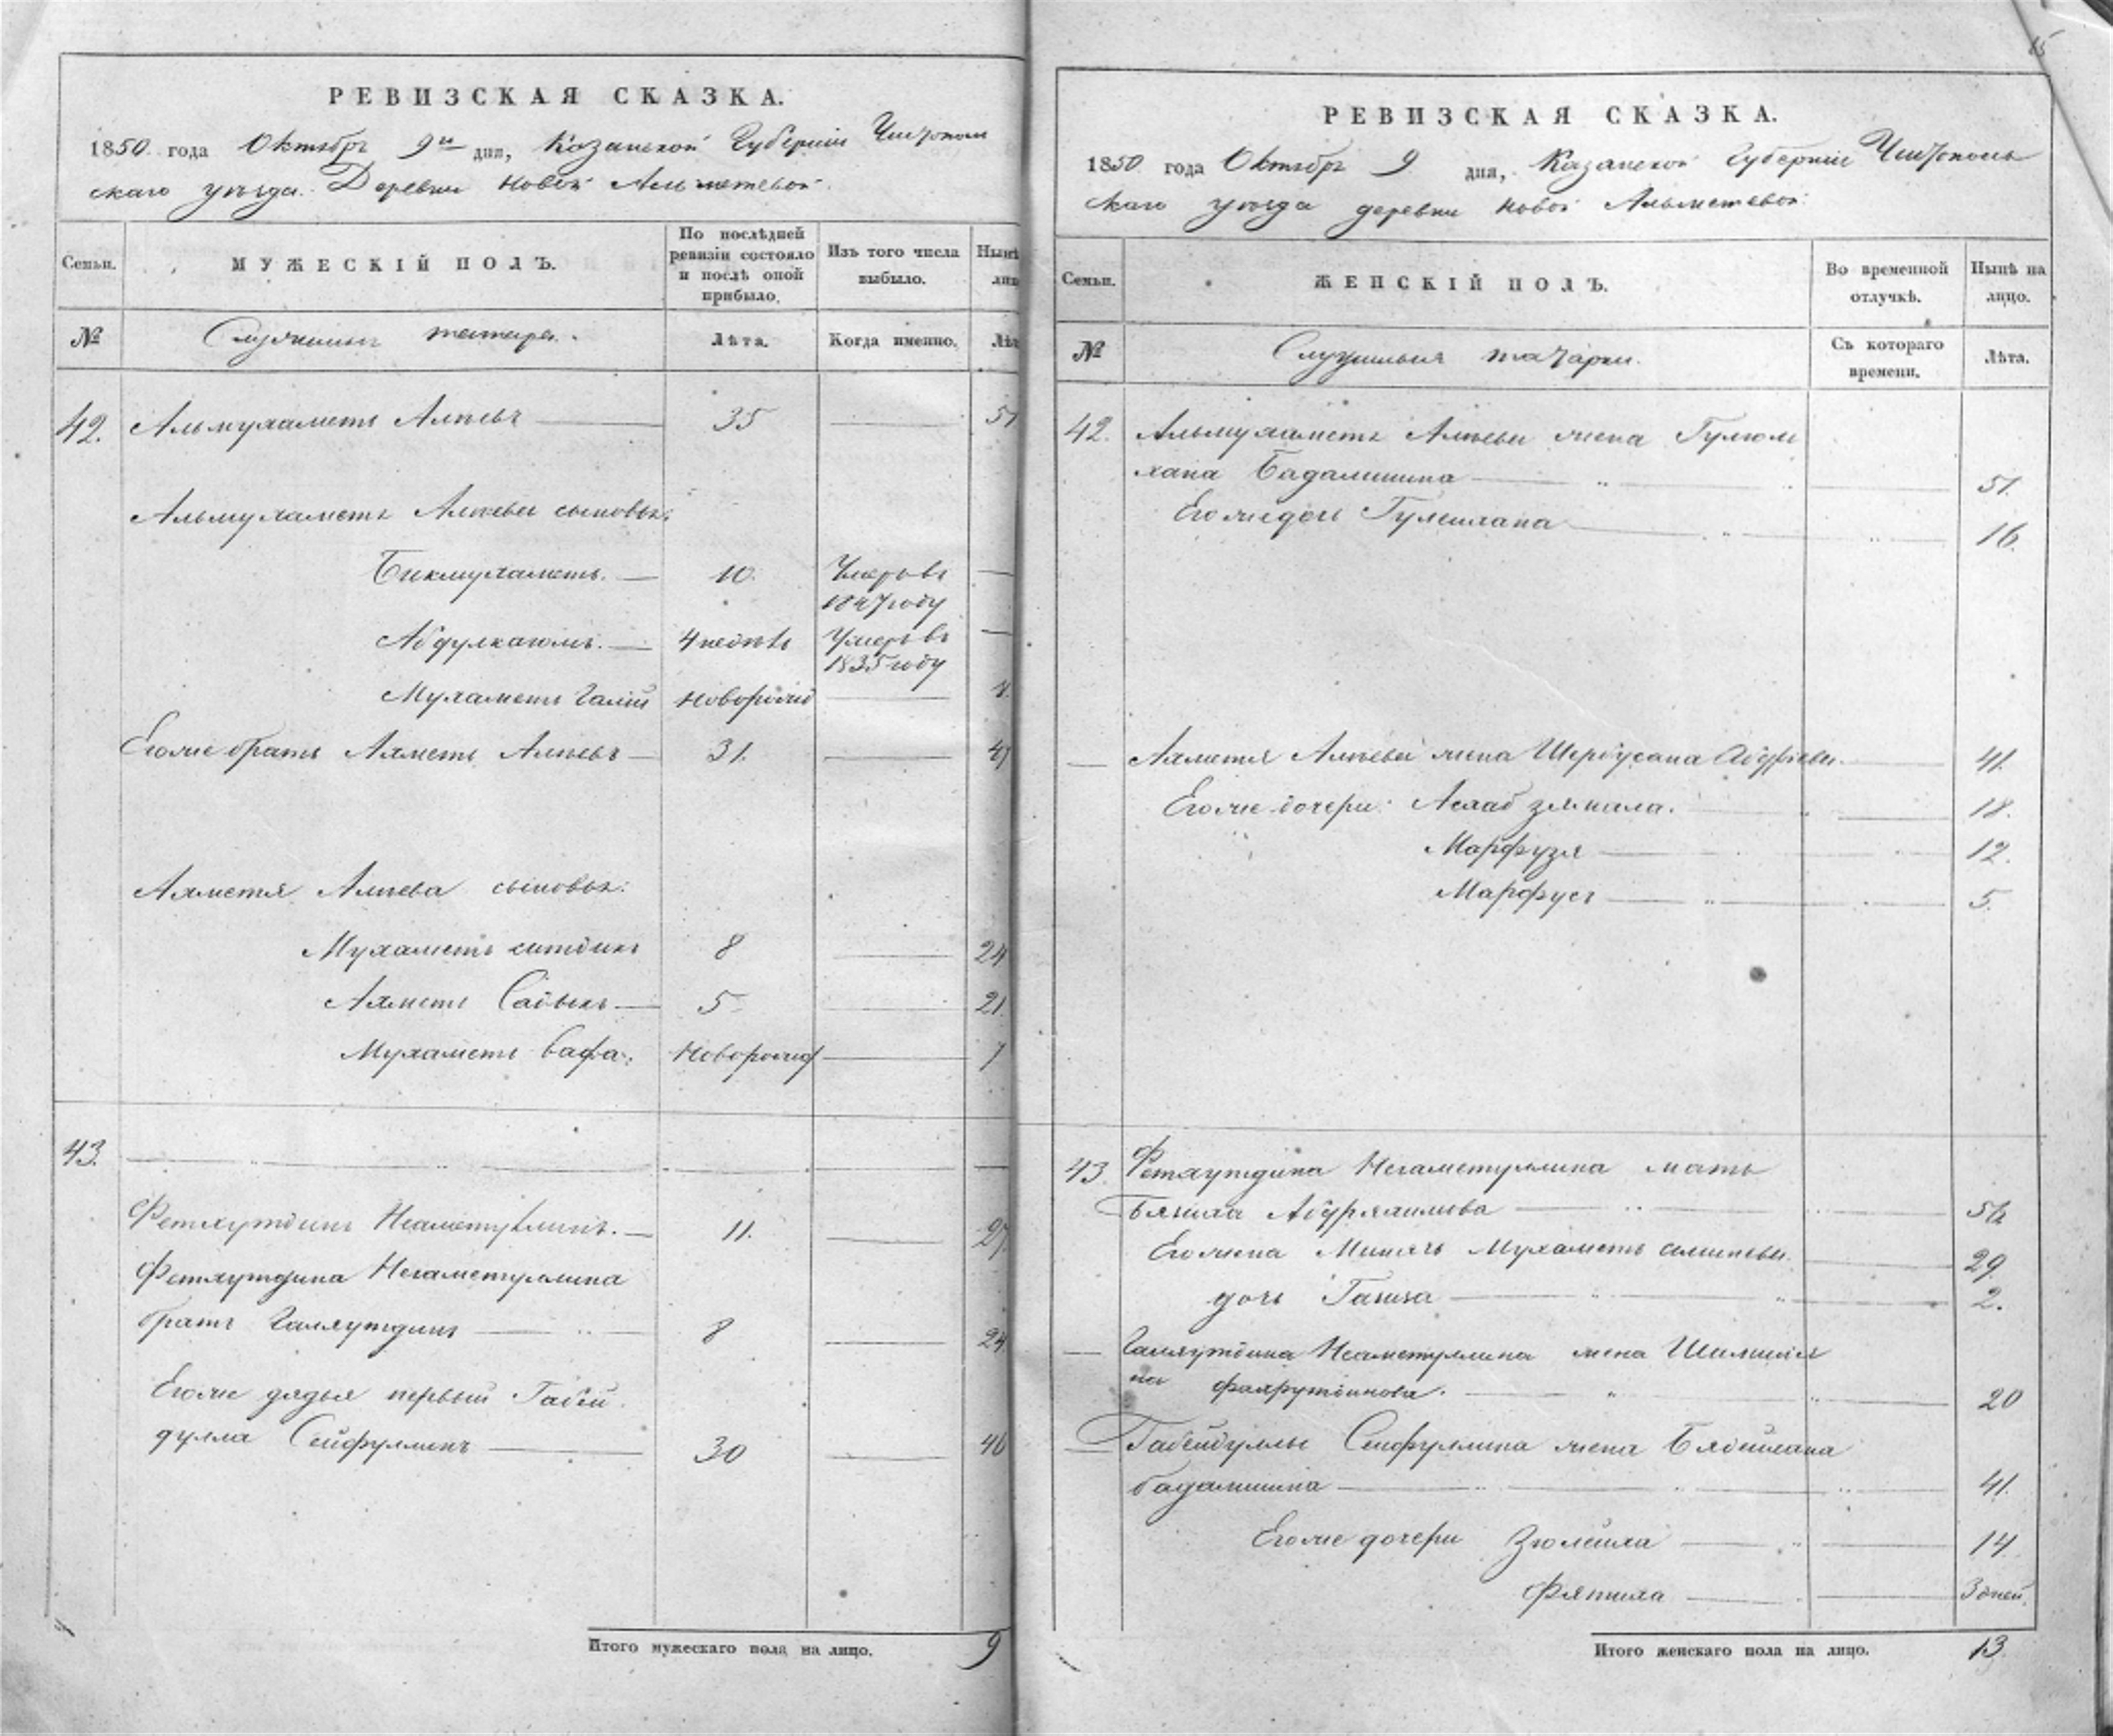 РЕВИЗСКАЯ СКАЗКА.
1850 года Октября 9го дня, Казанской Губернiи Чистополь
скаго уѣзда. Деревни Новой Альметевой.
Семьи.
МУЖЕСКIЙ ПОЛЪ.
По послѣдней
ревизiи состояло
и послѣ оной
прибыло.
Изъ того числа
выбыло.
Нынѣ
лиц
№
Служилыи татара.
Лѣта.
Когда именно.
Лѣт
42. Альмухаметъ Алѣевъ 35 51
Альмухаметя Алѣева сыновья:
Бикмухаметь. 10. Умеръ въ
1847 году
Абдулкаюмъ. 4 недѣль Умеръ въ
1835 году
Мухаметь Галiй Новорожд
Егоже братъ Ахметь Алѣевъ 31. 47
Ахметя Алѣева сыновья:
Мухаметь ситдикъ 8 24
Ахметь Садыкъ 5 21.
Мухаметь Вафа. Новорожд 7
43.
Фетхутдинъ Негаметуллинъ. 11. 27.
Фетхутдина Негаметуллина
братъ Галяутдинъ 8 24
Егоже дядья первый Габей
дулла Сейфуллинъ 30 46
Итого мужескаго пола на лицо. 9
15
РЕВИЗСКАЯ СКАЗКА.
1850 года Октября 9 дня, Казанской Губернiи Чистополь
скаго уѣзда деревни Новой Альметевой.
Семьи.
ЖЕНСКIЙ ПОЛЪ.
Во временной
отлучкѣ.
Нынѣ на
лицо.
№
Служилыя татарки.
Съ котораго
времени.
Лѣта.
42. Альмухаметя Алѣева жена Гулюм
хана Бадамшина 51.
Егоже дочь Гульшхана 16.
Ахметя Алѣева жена Шербусана 41.
Егоже дочери: Асхабзямала. 18.
Марфузя 12.
Марфуга 5.
43. Фетхутдина Негаметуллина мать
Бямиля Абдрахимова 56
Его жена Минягъ Мухаметь 29.
дочь Гакиза 2.
Галяутдина Негаметуллина жена
Фахрутдинова. 20
Габейдуллы Сейфуллина жена Бядейхана
Бадамшина 41.
Егоже дочери Зюлейха 14.
Фятиха 3 дней.
Итого женскаго пола на лицо. 13.